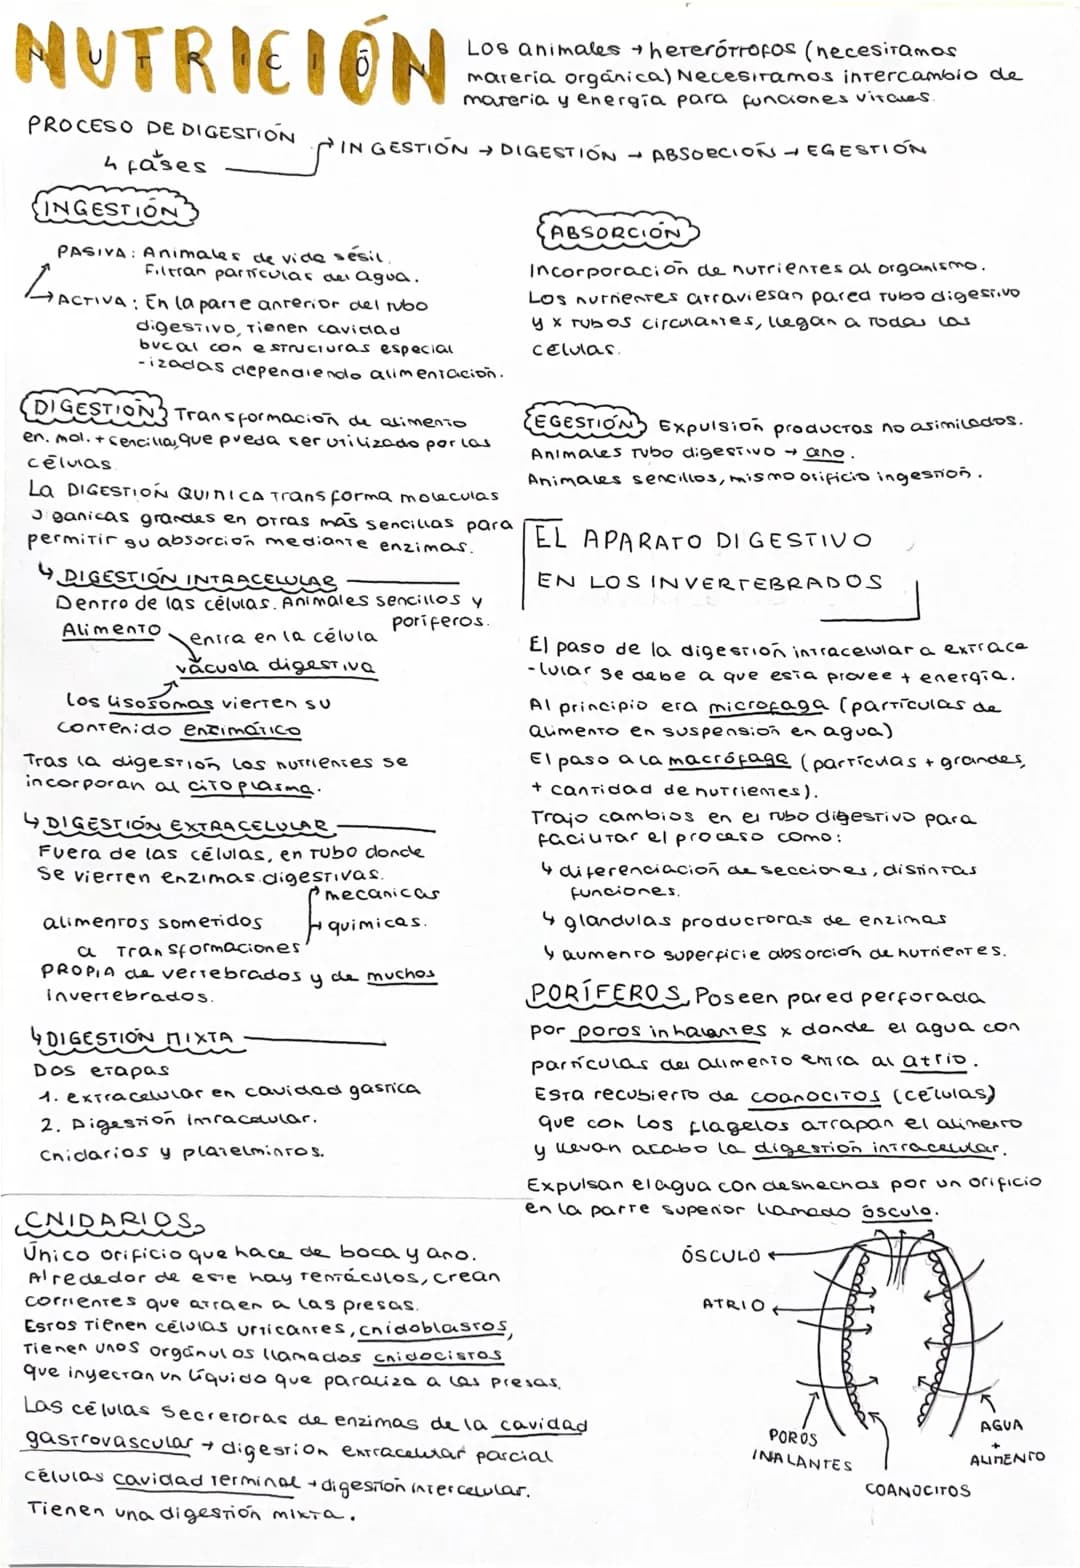 NUTRICIÓN
NUTRICIÓN
Los animales → heterótrofos (necesitamos
materia orgánica) Necesitamos intercambio de
materia y energía para funciones vitales.
PROCESO DE DIGESTIÓN
4 fases
INGESTIÓN → DIGESTIÓN → ABSORCIÓN → EGESTIÓN
INGESTIÓN
PASIVA: Animales de vida sésil.
Filtran partículas del agua.
→ ACTIVA: En la parte anterior del tubo
digestivo, tienen cavidad
bucal con estructuras especial
-izadas dependiendo alimentación.
DIGESTIÓN Transformación de alimento
en. mol. + sencillas, que pueda ser utilizado por las
células
La DIGESTIÓN QUINICA transforma moleculas
organicas grandes en otras más sencillas para
permitir su absorción mediante enzimas.
↳ DIGESTIÓN INTRACELULAR
Dentro de las células. Animales sencillos y
poríferos.
Alimento
entra en la célula
vacuola digestiva
los lisosomas vierten su
contenido enzimático
Tras la digestión los nutrientes se
incorporan al citoplasma.
↳ DIGESTIÓN EXTRACELULAR
Fuera de las células, en tubo donde
se vierten enzimas digestivas.
mecanicas
alimentos sometidos → quimicas.
a transformaciones
PROPIA de vertebrados y de muchos
invertebrados.
↳ DIGESTIÓN MIXTA
Dos etapas
1. extracelular en cavidad gástrica
2. Digestión intracelular.
Cnidarios y platelmintos.
CNIDARIOS
Único orificio que hace de boca y ano.
Alrededor de este hay tentáculos, crean
corrientes que atraen a las presas.
Estos tienen células urticantes, cnidoblastos,
Tienen unos orgánulos llamados cnidocistos
que inyectan un líquido que paraliza a las presas.
Las células secretoras de enzimas de la cavidad
gastrovascular → digestión extracelular parcial
células cavidad terminal → digestión intercelular.
Tienen una digestión mixta.
ABSORCIÓN
Incorporación de nutrientes al organismo.
Los nutrientes atraviesan pared tubo digestivo
y x tubos circulantes, llegan a todas las
células.
EGESTIÓN Expulsión productos no asimilados.
Animales tubo digestivo → ano.
Animales sencillos, mismo orificio ingestión.
EL APARATO DIGESTIVO
EN LOS INVERTEBRADOS
El paso de la digestión intracelular a extrace
-lular se debe a que esta provee + energía.
Al principio era microfaga (partículas de
alimento en suspensión en agua)
El paso a la macrófaga (partículas + grandes,
+ cantidad de nutrientes).
Trajo cambios en el tubo digestivo para
facilitar el proceso como:
↳ diferenciación de secciones, distintas
funciones.
↳ glandulas productoras de enzimas
↳ aumento superficie absorción de nutrientes.
PORÍFEROS Poseen pared perforada
por poros inhalantes x donde el agua con
partículas del alimento entra al atrio.
Esta recubierto de coanocitos (células)
que con los flagelos atrapan el alimento
y llevan acabo la digestión intracelular.
Expulsan el agua con deshechos por un orificio
en la parte superior llamado ósculo.
ÓSCULO
ATRIO
POROS
INALANTES
COANOCITOS
AGUA
+
ALIMENTO